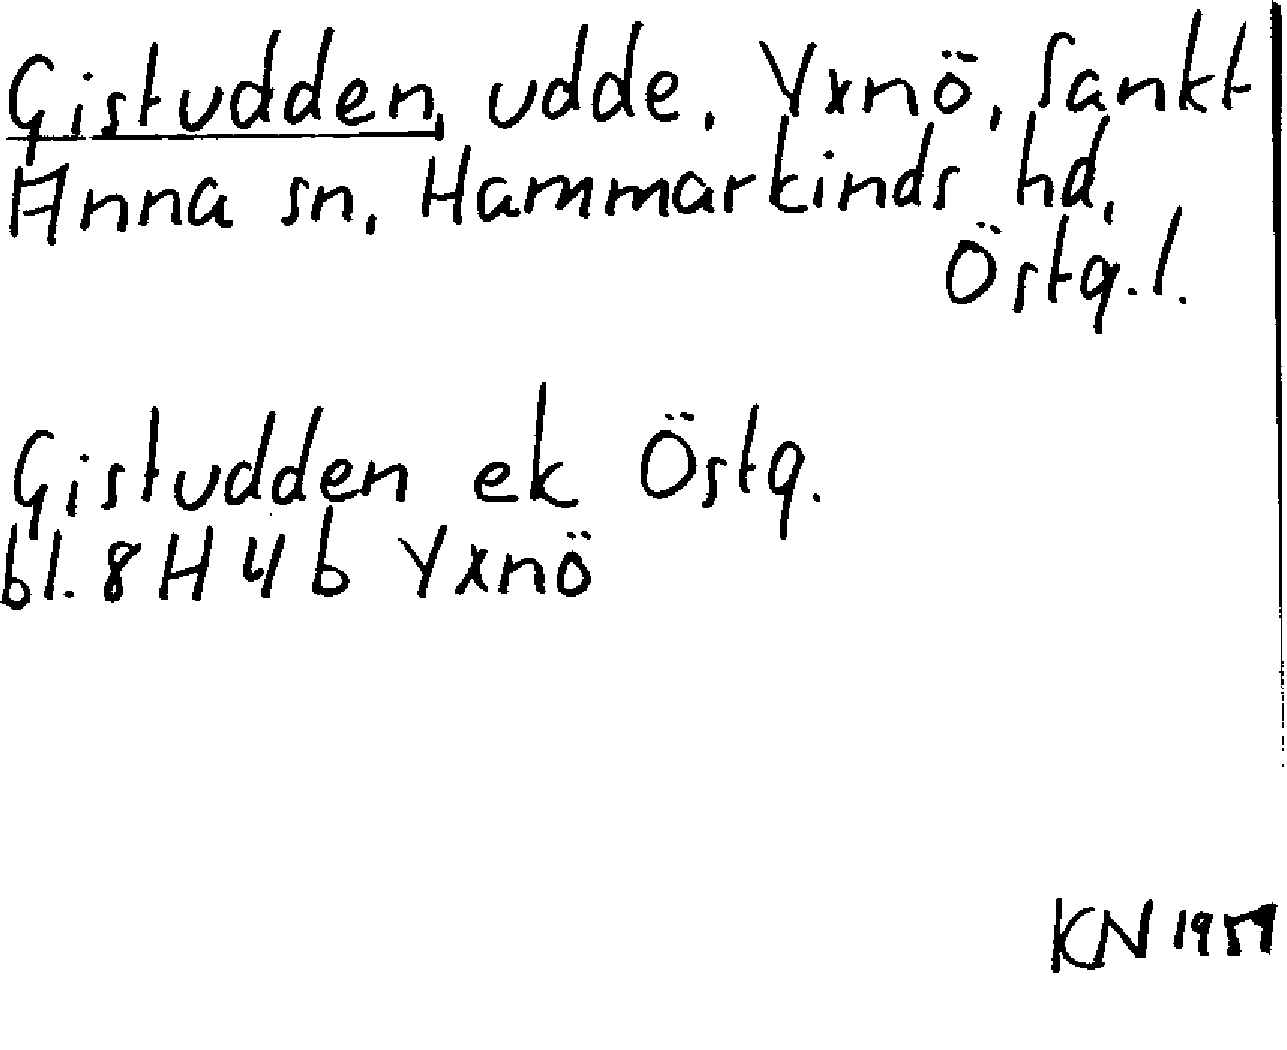 Gistudden, udde, Yxnö, Sankt
Anna sn, Hammarkinds hd,
Östg. l.
Gistudden ek Östg.
bl. 8 H 4 b Yxnö
KN